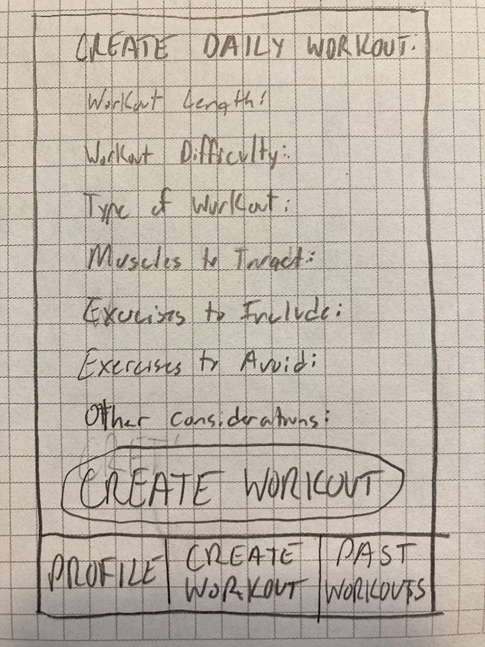 CREATE DAILY WORKOUT:
Workout Length:
Workout Difficulty:
Type of Workout:
Muscles to Target:
Exercises to Include:
Exercises to Avoid:
Other considerations:
CREATE WORKOUT
PROFILE
CREATE
WORKOUT
PAST
WORKOUTS